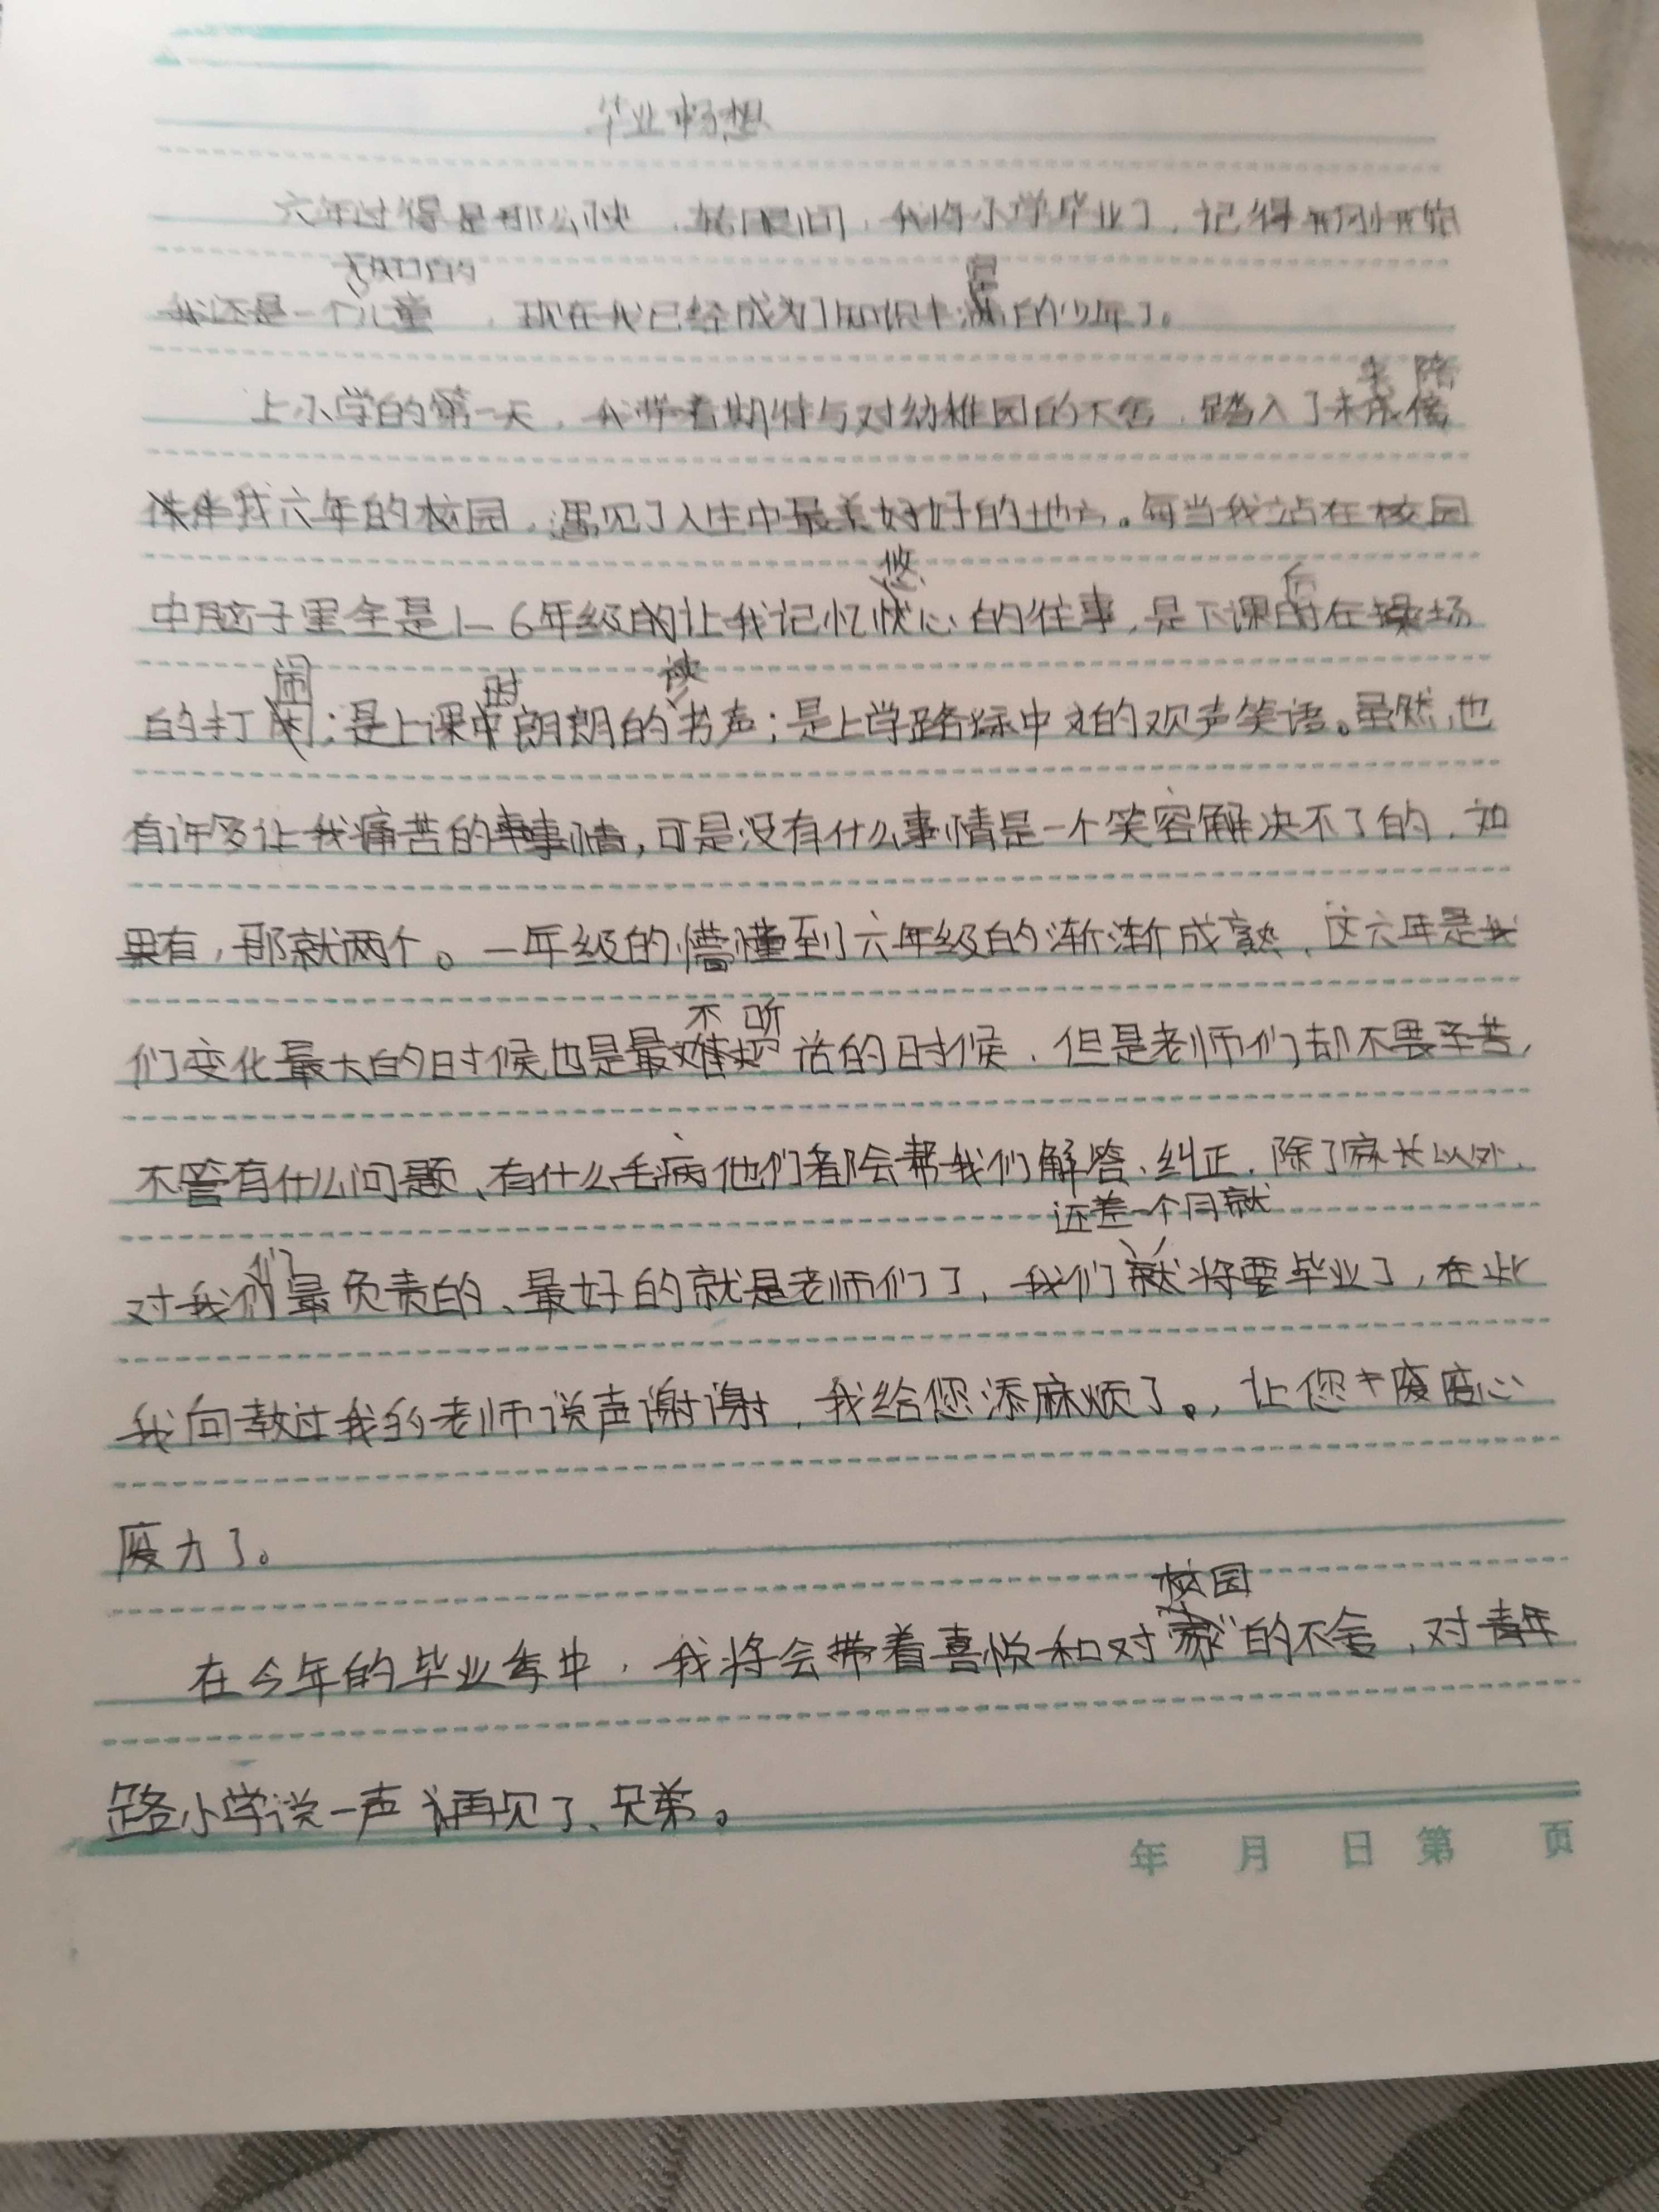 毕业畅想
六年过得是那么快，转眼间，我将小学毕业了，记得刚开始
我还是一个无知的儿童，现在我已经成为了知识丰富的少年了。
上小学的第一天，我带着期待与对幼稚园的不舍，踏入了未来陪
伴我六年的校园，遇见了人生中最美好的地方。每当我站在校园
中脑子里全是1—6年级让我记忆悠心的往事，是下课后在操场
的打闹；是上课时朗朗的读书声；是上学路中的观声笑语。虽然也
有许多让我痛苦的事情，可是没有什么事情是一个笑容解决不了的，如
果有，那就两个。一年级的懵懂到六年级的渐渐成熟，这六年是我
们变化最大的时候也是最不听话的时候，但是老师们却不畏辛苦，
不管有什么问题、有什么毛病他们都会帮我们解答、纠正，除了家长以外，
对我们最负责的、最好的就是老师们了，我们还差一个月就将要毕业了，在此
我向教过我的老师说声谢谢，我给您添麻烦了。，让您废心
废力了。
在今年的毕业季中，我将会带着喜悦和对校园的不舍，对青年
路小学说一声再见了、兄弟。
年 月 日 第 页